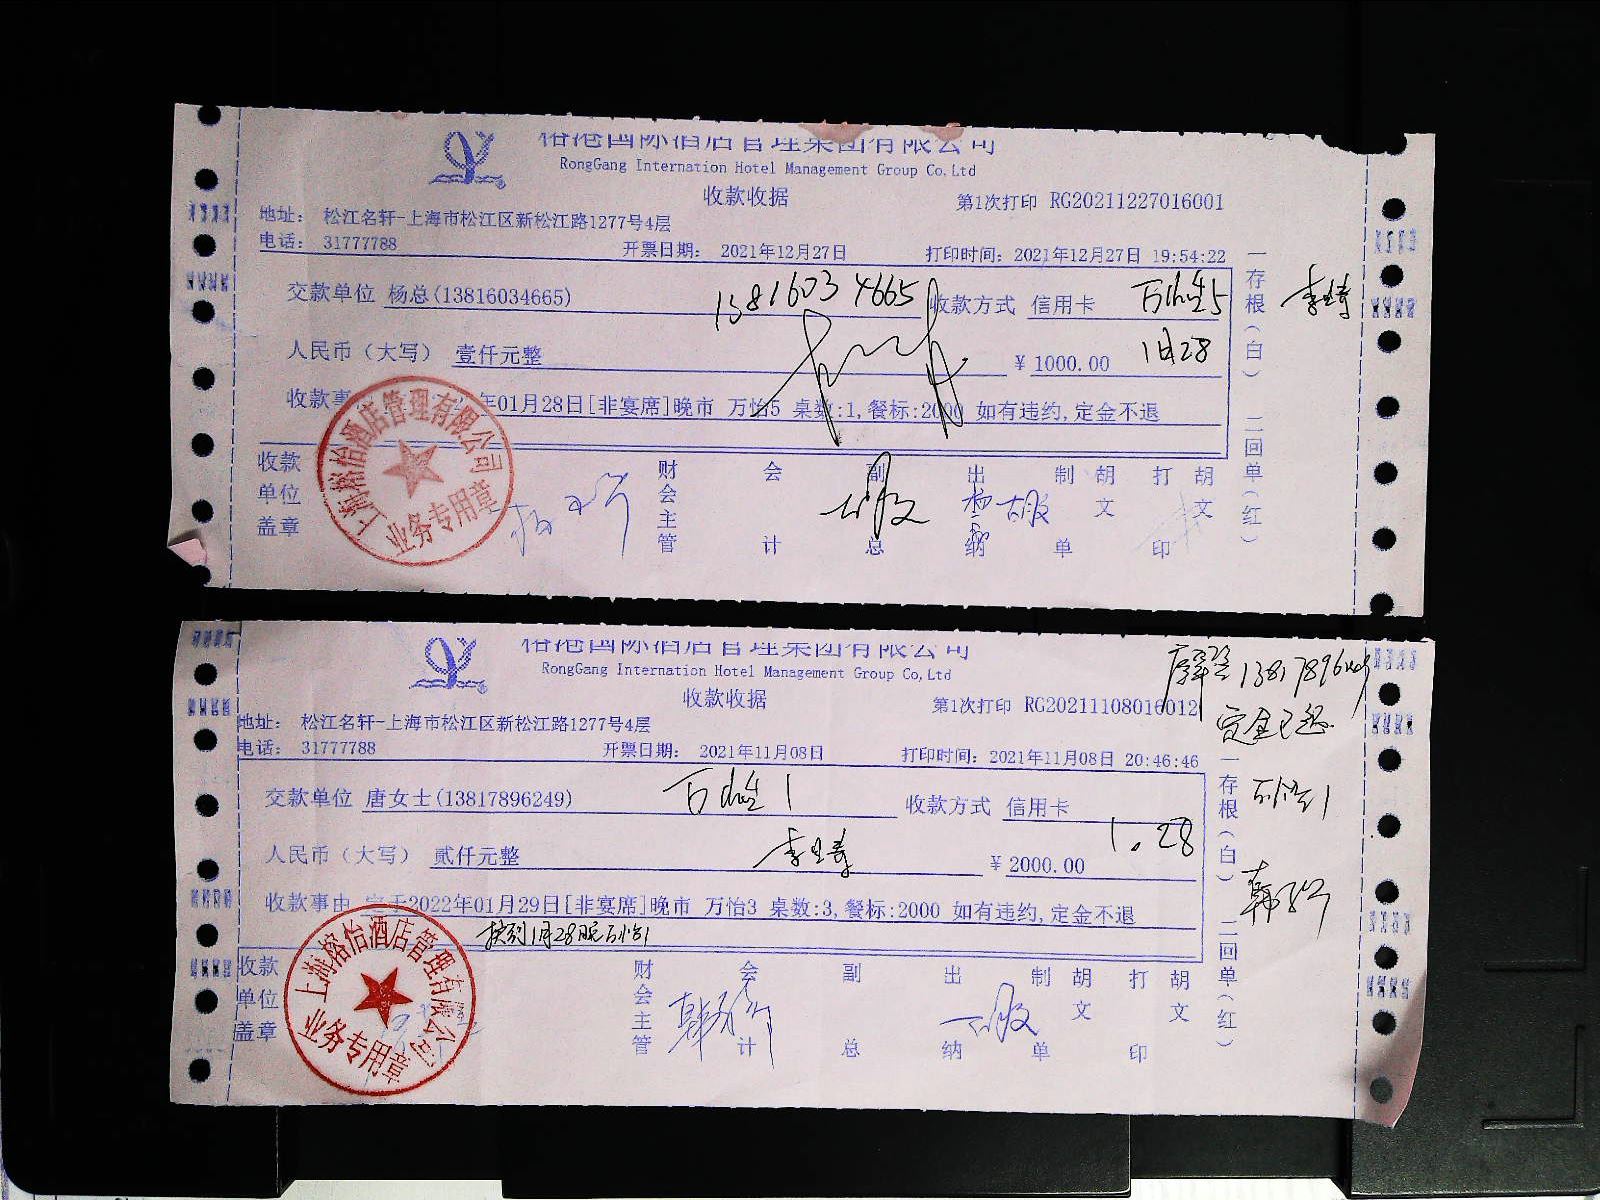 榕港国际酒店管理集团有限公司
RongGang Internation Hotel Management Group Co,Ltd
收款收据
第1次打印 RG20211227016001
地址： 松江名轩-上海市松江区新松江路1277号4层
电话： 31777788 开票日期： 2021年12月27日 打印时间： 2021年12月27日 19:54:22
交款单位 杨总(13816034665) 13816034665 收款方式 信用卡 万怡5
人民币（大写） 壹仟元整 ¥ 1000.00 1月28
收款事 年01月28日[非宴席]晚市 万怡5 桌数:1,餐标:2000 如有违约,定金不退
收款单位盖章 财会主管 会计 副总 出纳 制单 胡文 打印 胡文
一存根（白） 二回单（红）
上海榕怡酒店管理有限公司
业务专用章
榕港国际酒店管理集团有限公司
RongGang Internation Hotel Management Group Co,Ltd
收款收据
第1次打印 RG20211108016012
定金已
地址： 松江名轩-上海市松江区新松江路1277号4层
电话： 31777788 开票日期： 2021年11月08日 打印时间： 2021年11月08日 20:46:46
交款单位 唐女士(13817896249) 万怡1 收款方式 信用卡
万怡1
人民币（大写） 贰仟元整 ¥ 2000.00 1.28
收款事由 定于2022年01月29日[非宴席]晚市 万怡3 桌数:3,餐标:2000 如有违约,定金不退
换到1月28晚万怡1
收款单位盖章 财会主管 会计 副总 出纳 制单 胡文 打印 胡文
一存根（白） 二回单（红）
上海榕怡酒店管理有限公司
业务专用章